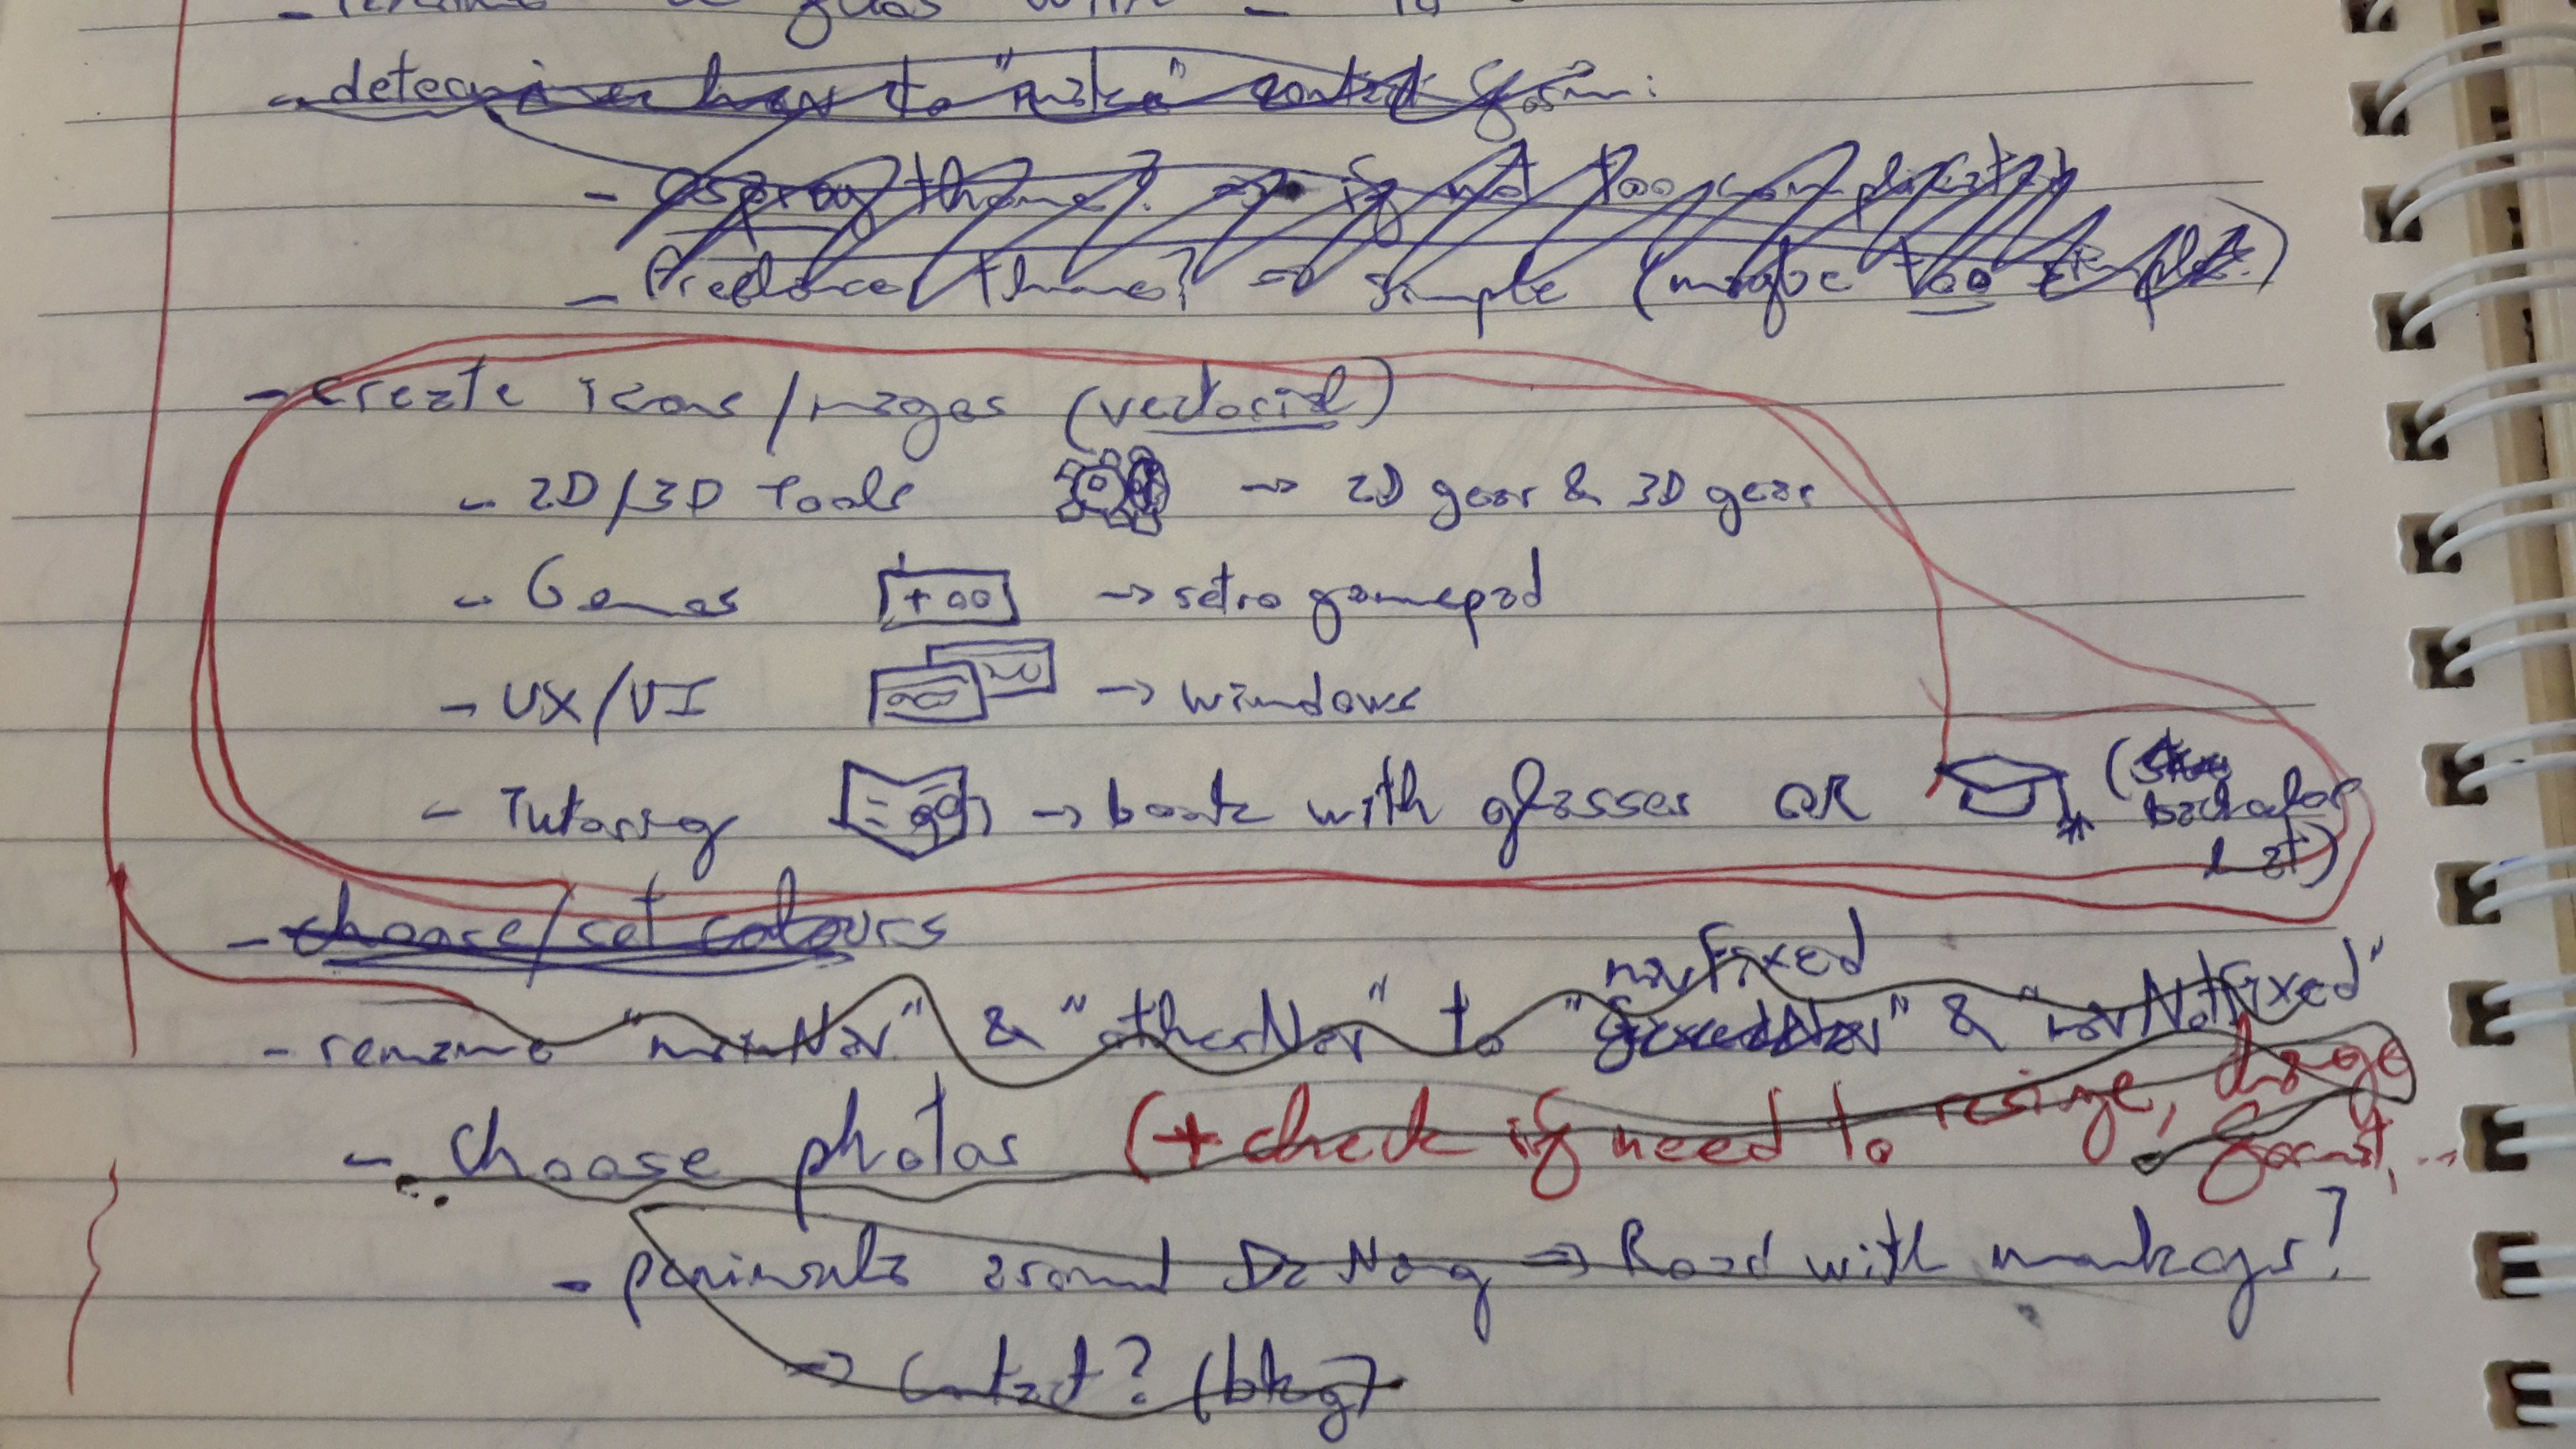 - determine how to "make" contact form:
- theme? => if not too complicated
- freelance theme? => simple (maybe too simple?)
- create icons/images (vectorial)
- 2D/3D Tools -> 2D gear & 3D gear
- Games -> retro gamepad
- UX/UI -> windows
- Tutoring -> book with glasses OR (bachelor hat)
- choose/set colours
- rename "mainNav" & "otherNav" to "navFixed" & "navNotFixed"
- choose photos (+ check if need to resize, change format, ...
- peninsula around Da Nang => Road with monkeys?
-> Contact? (bkg)